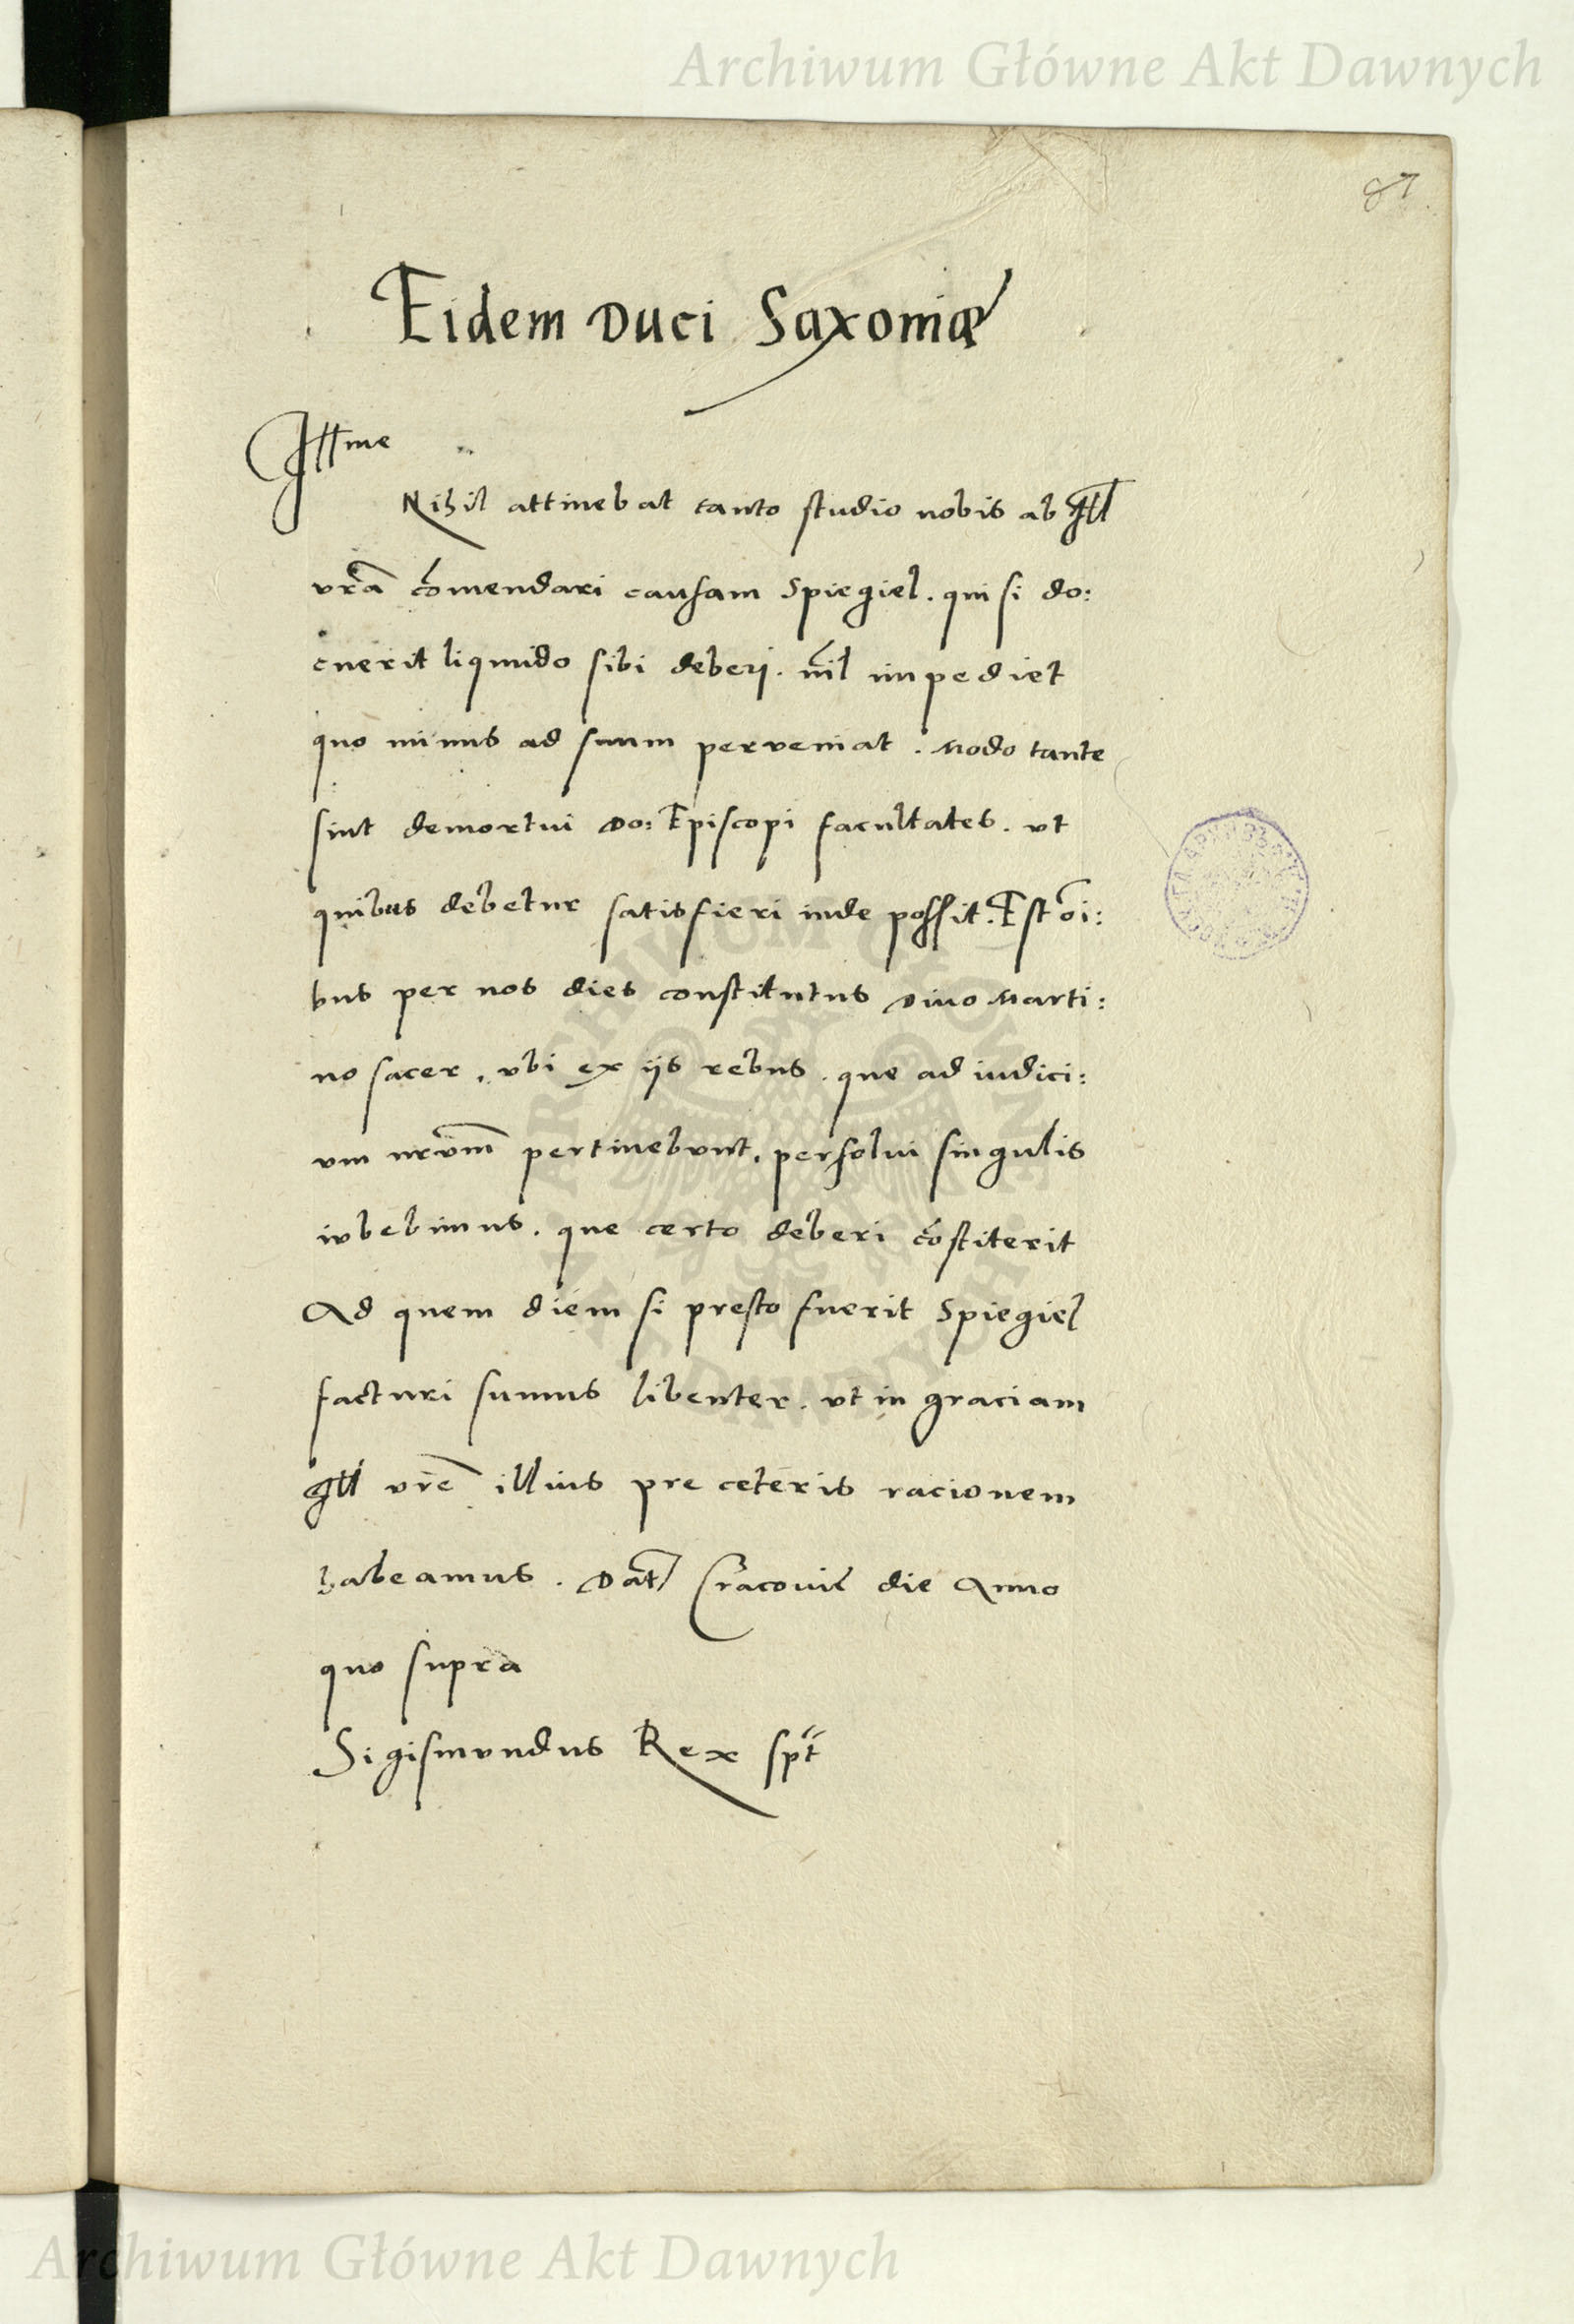 Archiwum Główne Akt Dawnych
87
Eidem Duci Saxoniæ
Illme
Nihil attinebat tanto studio nobis ab Ill
vrā cōmendari causam Spiegiel. qui si do:
cuerit liquido sibi deberi. nīl impediet
quo minus ad suum perveniat. Modo tante
sint demortui Do: Episcopi facultates. vt
quibus debetur satisfieri inde possit. Est oī:
bus per nos dies constitutus Divo Marti:
no sacer, vbi ex iis rebus. que ad iudici:
vm nrvm̄ pertinebvnt, persolvi singulis
ivbebimus. que certo deberi cōstiterit
Ad quem diem si presto fuerit Spiegiel
facturi sumus libenter. vt in graciam
Ill vrē illius pre ceteris racionem
habeamus. Dat Cracovie die Anno
quo supra
Sigismvndus Rex spt
ARCHIWUM GŁÓWNE AKT DAWNYCH
Archiwum Główne Akt Dawnych